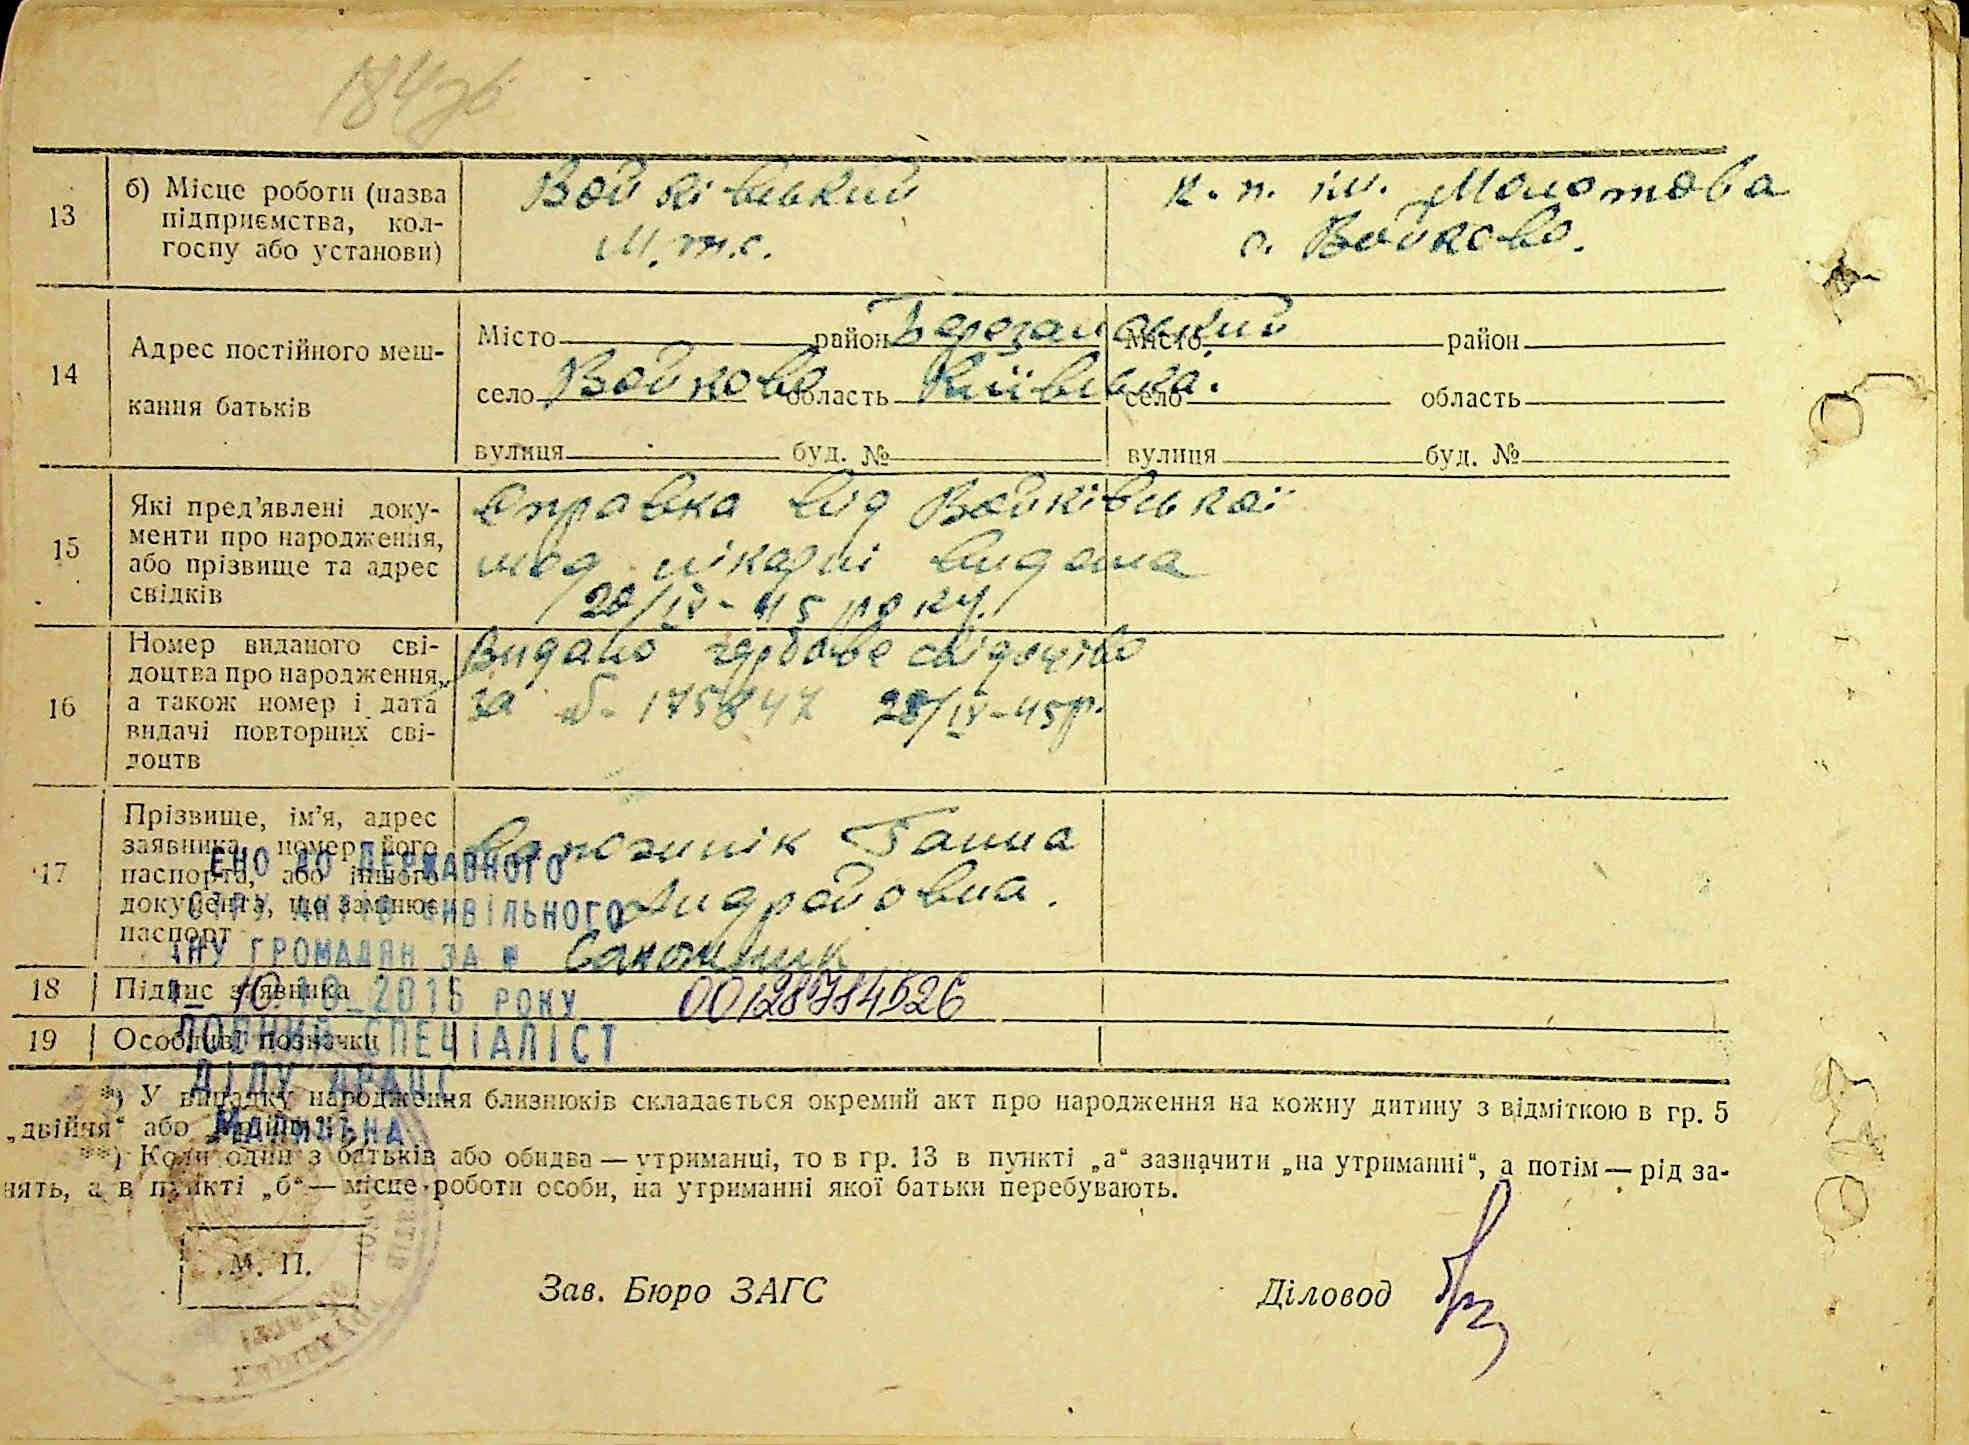 184зв
13
б) Місце роботи (назва
підприємства, кол-
госпу або установи)
Войківський
М.т.с.
к. п. ім. Молотова
с. Войково.
14
Адрес постійного меш-
кання батьків
Місто район Березанський
село Войково область Київська.
вулиця буд. №
Місто район
село область
вулиця буд. №
15
Які пред’явлені доку-
менти про народження,
або прізвище та адрес
свідків
Справка від Войківської
видана
20/IV-45 року.
16
Номер виданого сві-
доцтва про народження,
а також номер і дата
видачі повторних сві-
доцтв
Видано гербове свідоцтво
за 175847 28/IV-45р.
17
Прізвище, ім’я, адрес
заявника, номер його
паспорта, або іншого
документа, що замінює
паспорт
Ганна
Андрейовна.
18
Підпис заявника
19
Особливі позначки
ЕНО ДО ДЕРЖАВНОГО
СТРУ АКТІВ ЦИВІЛЬНОГО
АНУ ГРОМАДЯН ЗА №
00128784526
10 2015 РОКУ
ЛОВНИЙ СПЕЦІАЛІСТ
ДІЛУ ДРАЦС
*) У випадку народження близнюків складається окремий акт про народження на кожну дитину з відміткою в гр. 5
„двійня“ або
**) Коли один з батьків або обидва — утриманці, то в гр. 13 в пункті „а“ зазначити „на утриманні“, а потім — рід за-
нять, а в пункті „б“ — місце роботи особи, на утриманні якої батьки перебувають.
М. П.
Зав. Бюро ЗАГС
Діловод